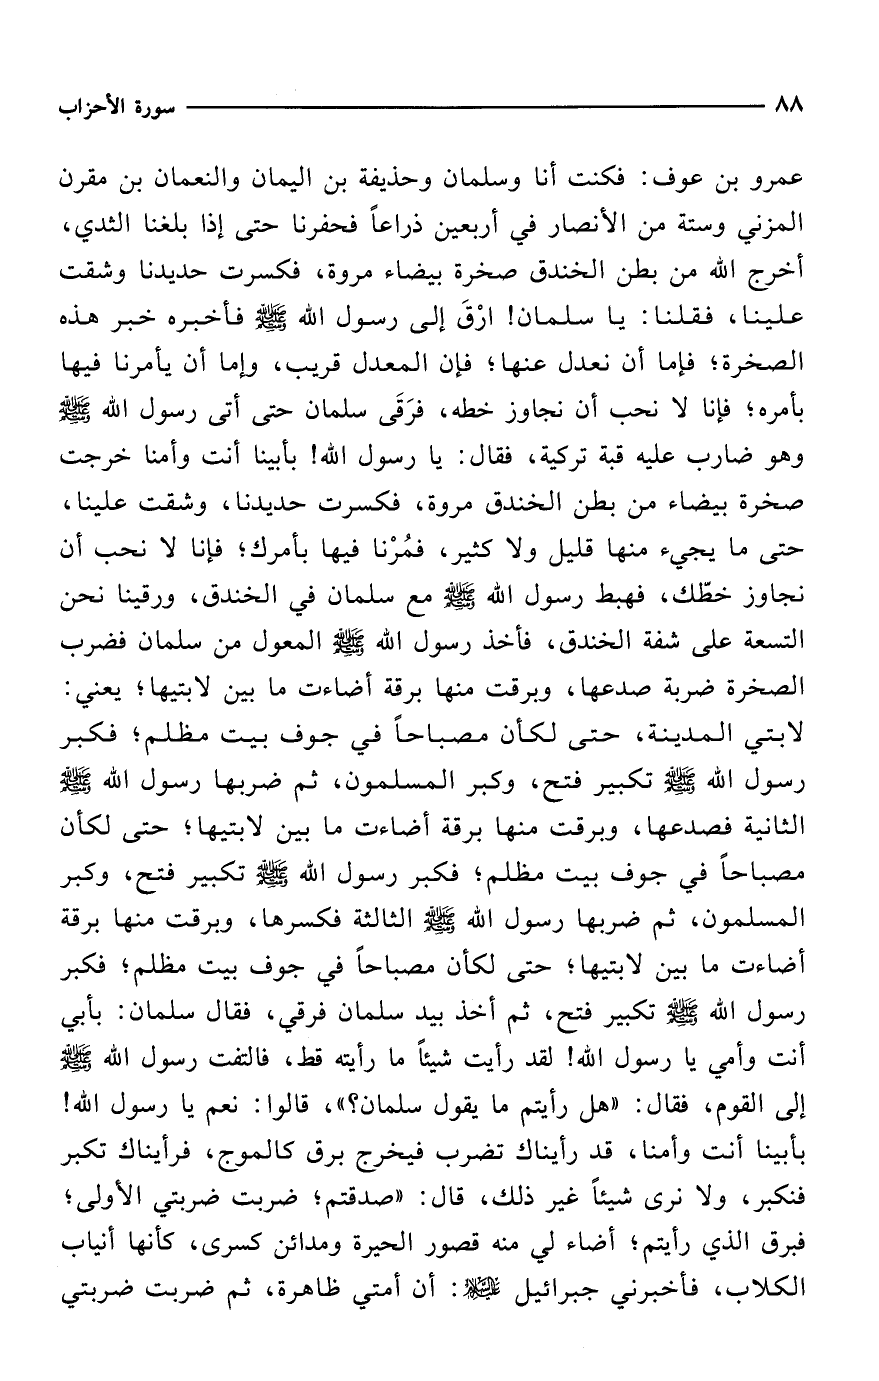 ٨٨ سورة الأحزاب
عمرو بن عوف: فكنت أنا وسلمان وحذيفة بن اليمان والنعمان بن مقرن
المزني وستة من الأنصار في أربعين ذراعاً فحفرنا حتى إذا بلغنا الثدي،
أخرج الله من بطن الخندق صخرة بيضاء مروة، فكسرت حديدنا وشقت
علينا، فقلنا: يا سلمان! ارْقَ إلى رسول الله ﷺ فأخبره خبر هذه
الصخرة؛ فإما أن نعدل عنها؛ فإن المعدل قريب، وإما أن يأمرنا فيها
بأمره؛ فإنا لا نحب أن نجاوز خطه، فرَقَى سلمان حتى أتى رسول الله ﷺ
وهو ضارب عليه قبة تركية، فقال: يا رسول الله! بأبينا أنت وأمنا خرجت
صخرة بيضاء من بطن الخندق مروة، فكسرت حديدنا، وشقت علينا،
حتى ما يجيء منها قليل ولا كثير، فمُرْنا فيها بأمرك؛ فإنا لا نحب أن
نجاوز خطّك، فهبط رسول الله ﷺ مع سلمان في الخندق، ورقينا نحن
التسعة على شفة الخندق، فأخذ رسول الله ﷺ المعول من سلمان فضرب
الصخرة ضربة صدعها، وبرقت منها برقة أضاءت ما بين لابتيها؛ يعني:
لابتي المدينة، حتى لكأن مصباحاً في جوف بيت مظلم؛ فكبر
رسول الله ﷺ تكبير فتح، وكبر المسلمون، ثم ضربها رسول الله ﷺ
الثانية فصدعها، وبرقت منها برقة أضاءت ما بين لابتيها؛ حتى لكأن
مصباحاً في جوف بيت مظلم؛ فكبر رسول الله ﷺ تكبير فتح، وكبر
المسلمون، ثم ضربها رسول الله ﷺ الثالثة فكسرها، وبرقت منها برقة
أضاءت ما بين لابتيها؛ حتى لكأن مصباحاً في جوف بيت مظلم؛ فكبر
رسول الله ﷺ تكبير فتح، ثم أخذ بيد سلمان فرقي، فقال سلمان: بأبي
أنت وأمي يا رسول الله! لقد رأيت شيئاً ما رأيته قط، فالتفت رسول الله ﷺ
إلى القوم، فقال: «هل رأيتم ما يقول سلمان؟»، قالوا: نعم يا رسول الله!
بأبينا أنت وأمنا، قد رأيناك تضرب فيخرج برق كالموج، فرأيناك تكبر
فنكبر، ولا نرى شيئاً غير ذلك، قال: «صدقتم؛ ضربت ضربتي الأولى؛
فبرق الذي رأيتم؛ أضاء لي منه قصور الحيرة ومدائن كسرى، كأنها أنياب
الكلاب، فأخبرني جبرائيل عليه السلام: أن أمتي ظاهرة، ثم ضربت ضربتي